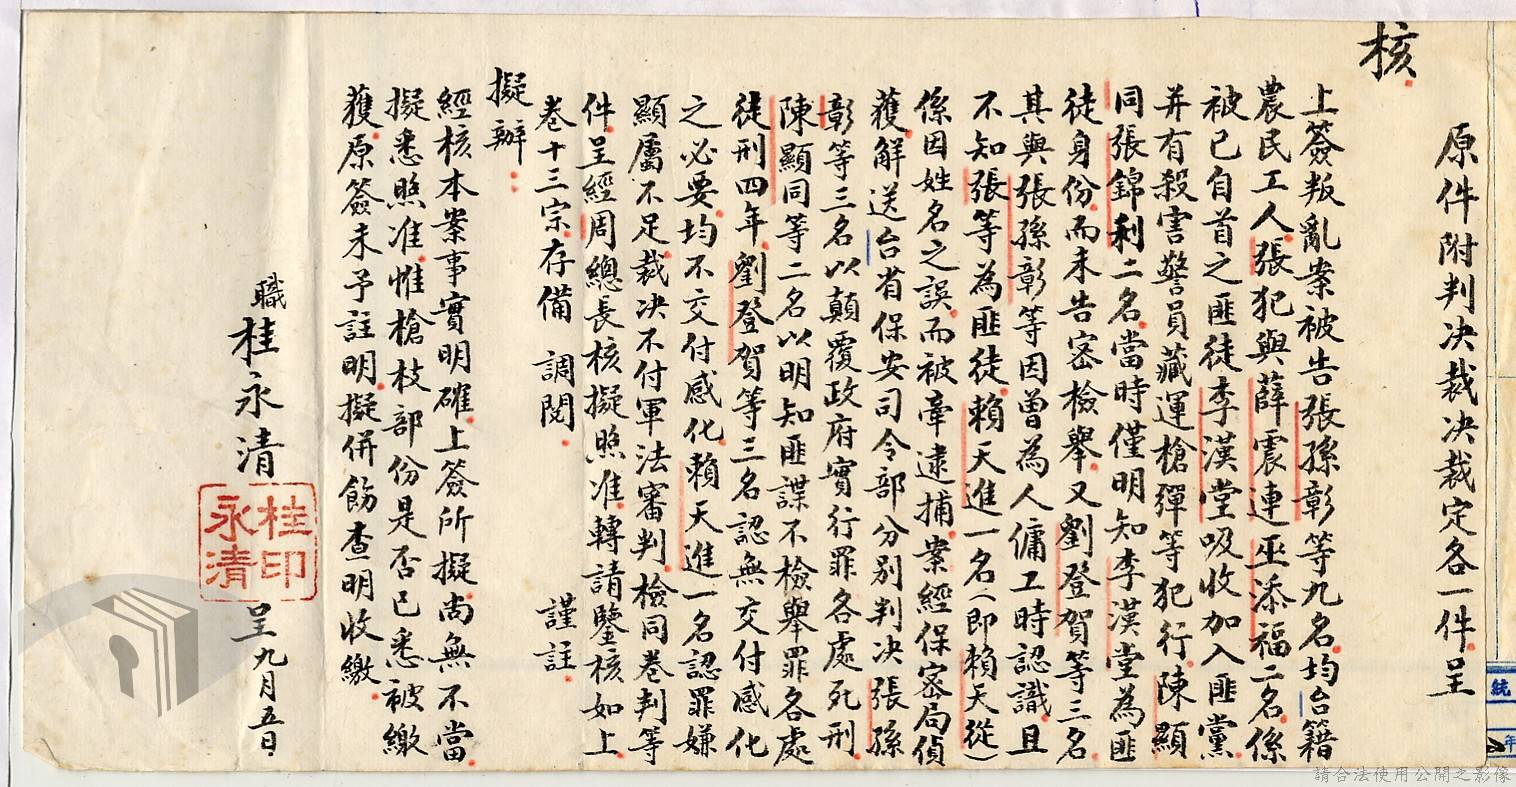 原件附判决裁决裁定各一件呈
核
上簽叛亂案被告張孫彰等九名均台籍
農民工人張犯與薛震連巫添福二名係
被已自首之匪徒李漢堂吸收加入匪黨
并有殺害警員藏運槍彈等犯行陳顯
同張錦利二名當時僅明知李漢堂為匪
徒身份而未告密檢舉又劉登賀等三名
其與張孫彰等因曾為人傭工時認識且
不知張等為匪徒賴天進一名(即賴天從)
係因姓名之誤而被牽逮捕案經保密局偵
獲解送台省保安司令部分別判决張孫
彰等三名以顛覆政府實行罪各處死刑
陳顯同等二名以明知匪諜不檢舉罪各處
徒刑四年劉登賀等三名認無交付感化
之必要均不交付感化賴天進一名認罪嫌
顯屬不足裁决不付軍法審判檢同卷判等
件呈經周總長核擬照准轉請鑒核如上
卷十三宗存備調閱 謹註
擬辦:
經核本案事實明確上簽所擬尚無不當
擬悉照准惟槍枝部份是否已悉被繳
獲原簽未予註明擬併飭查明收繳
職桂永清
桂永清印
呈九月五日
統
年
請合法使用公開之影像